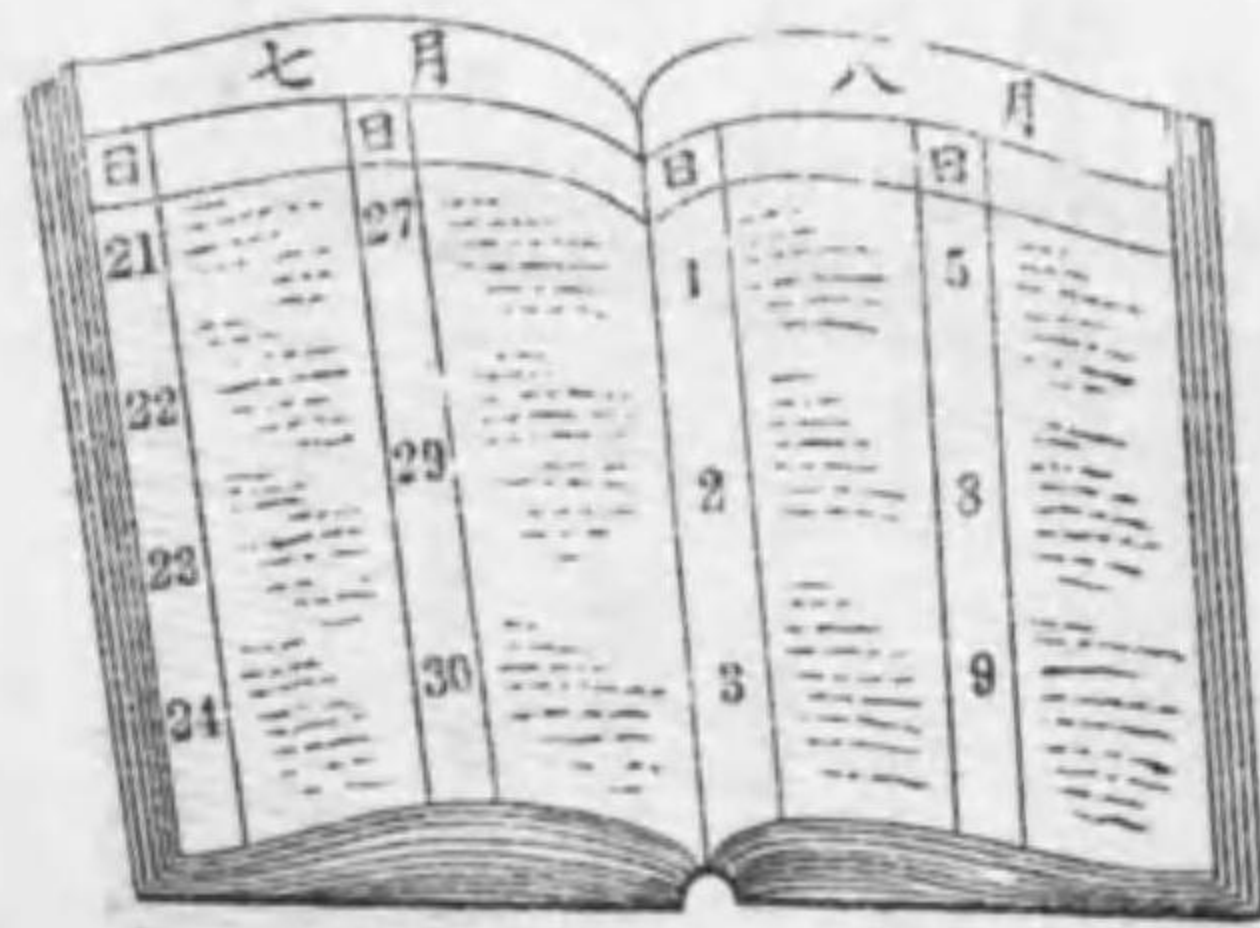 七月
日 日
21
22
23
24
27
29
30
八月
日 日
1
2
3
5
8
9